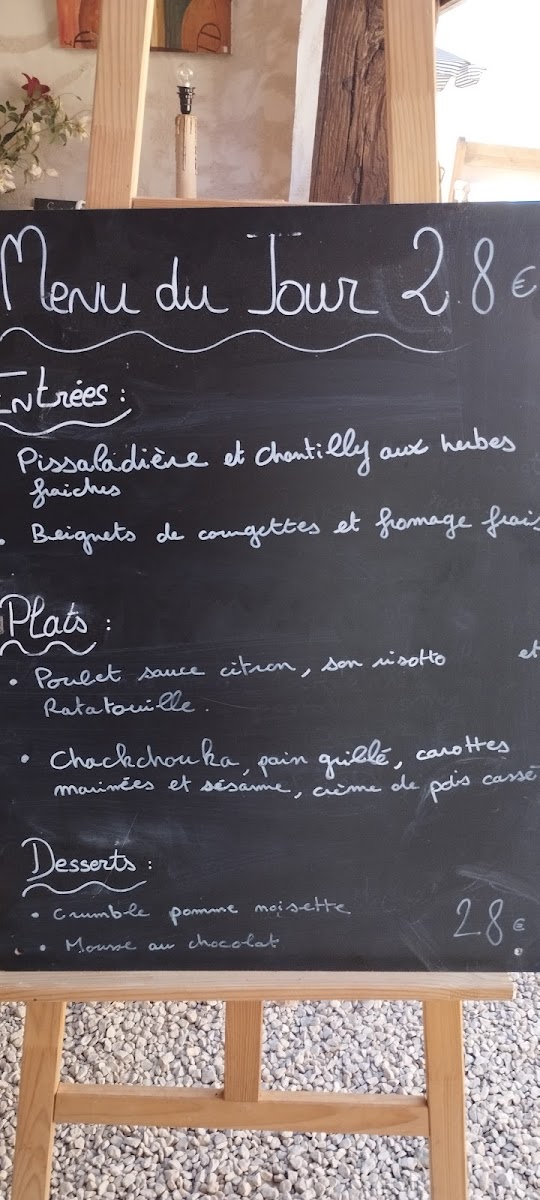 Menu du Jour 28 €
Entrées :
Pissaladière et chantilly aux herbes
fraiches
• Beignets de courgettes et fromage frais
Plats :
• Poulet sauce citron, son risotto et
Ratatouille.
• Chackchouka, pain grillé, carottes
marinées et sésame, crème de pois cassé
Desserts :
• Crumble pomme noisette
• Mousse au chocolat
28 €